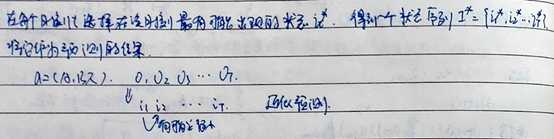 在每个时刻t选择在该时刻最有可能出现的状态 it*. 得到一个状态序列 I*={i1*,i2*…iT*}
将它作为预测的结果.
λ=(A,B,π). O1 O2 O3 … OT
↓
i1 i2 … iT. 近似预测.
有可能